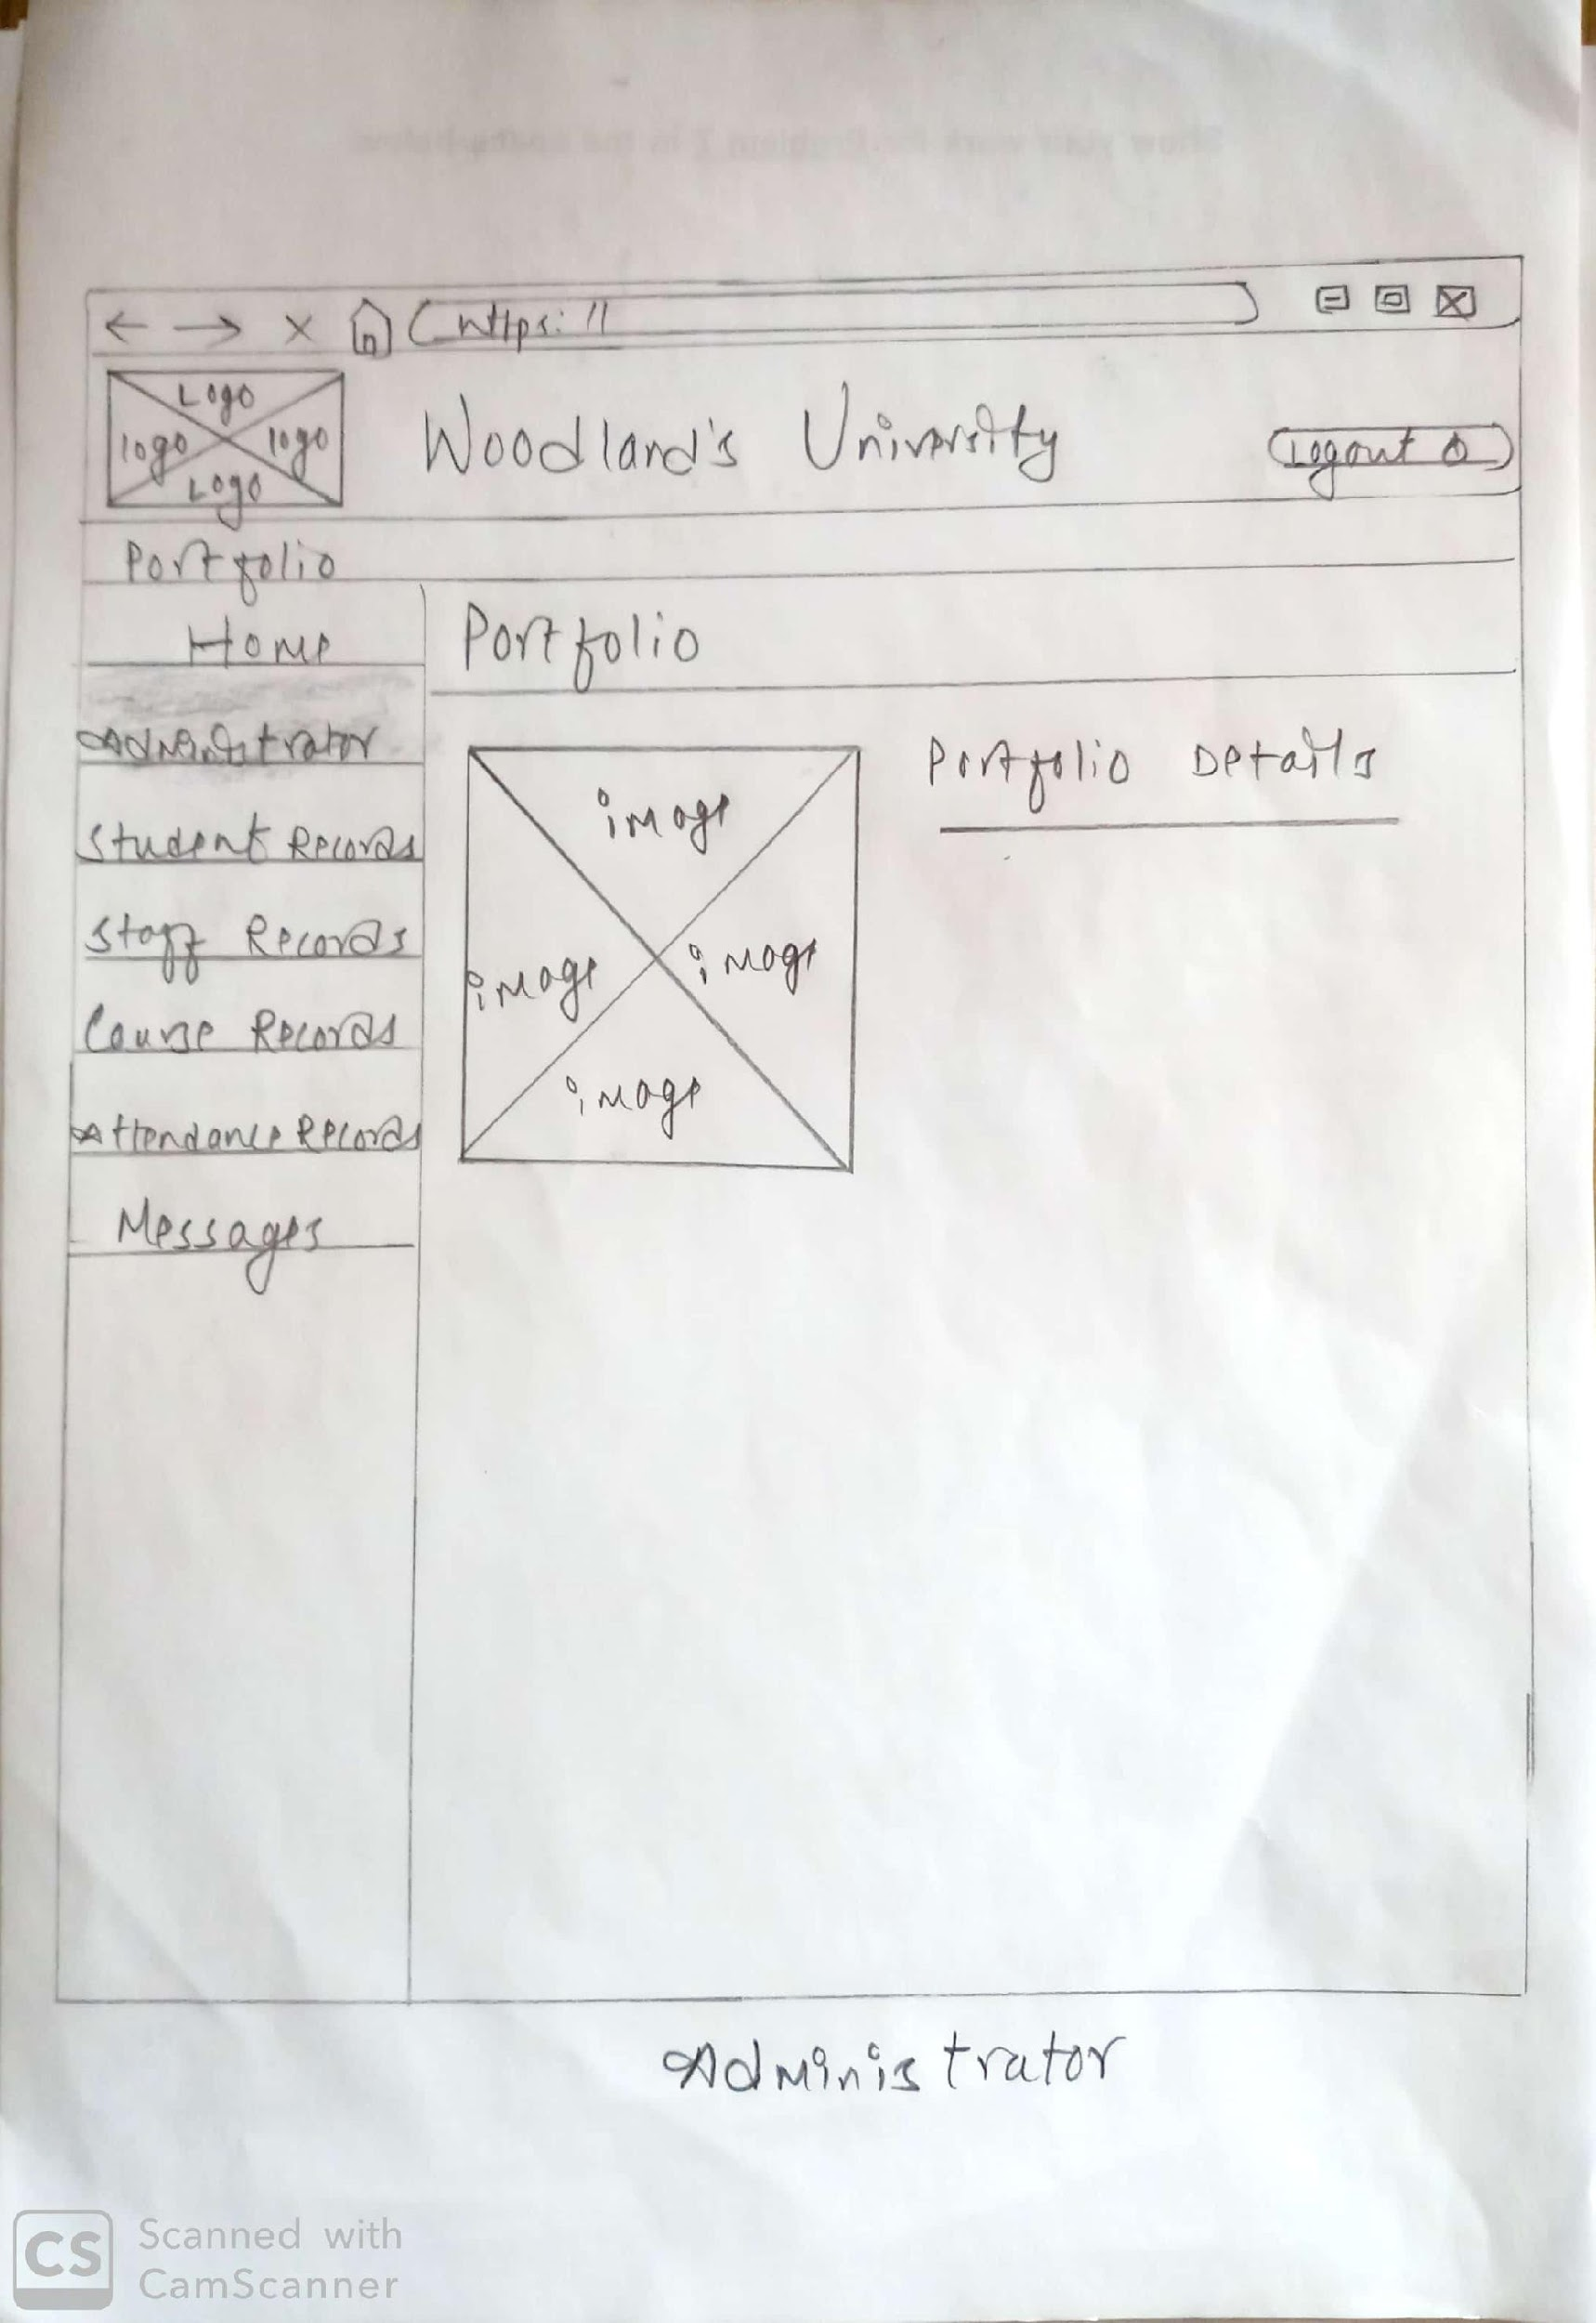 https://
Logo
logo logo
Logo
Woodland's University
Logout
Portfolio
Home
Portfolio
Administrator
Student Records
Staff Records
Course Records
Attendance Records
Messages
image
image image
image
Portfolio Details
Administrator
CS Scanned with
CamScanner